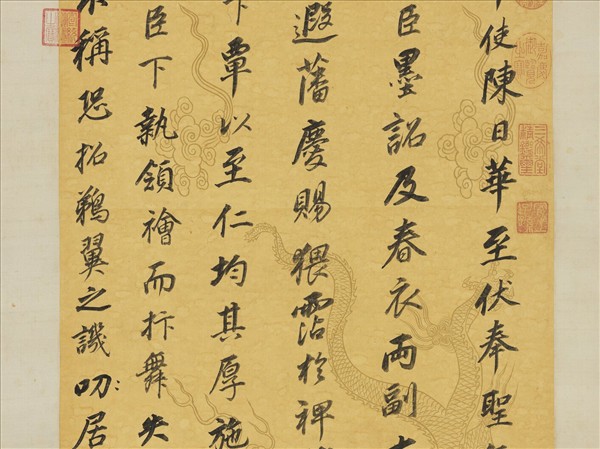 使陳日華至伏奉聖
臣墨詔及春衣兩副
遐藩慶賜猥霑於裨
下覃以至仁均其厚施
臣下執領襘而抃舞失
不稱恐招鵜翼之譏叨〻居